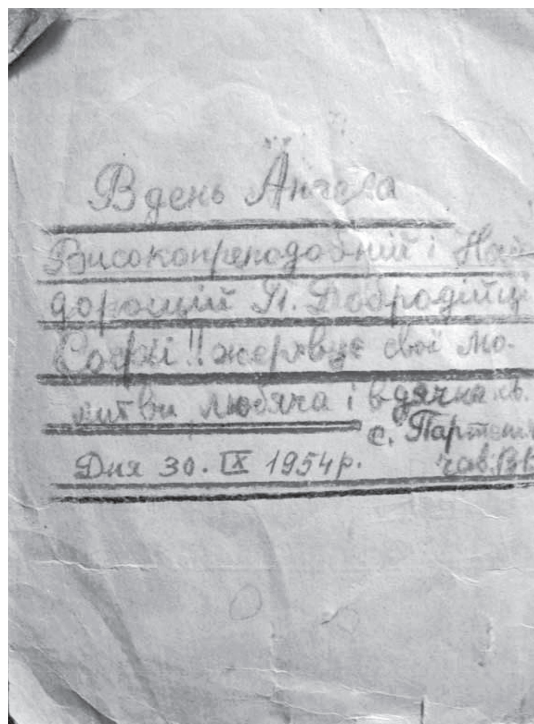 В день Ангела
Високопреподобній і Най-
дорощій П. Добродійці
Софії!! жертвує свої мо-
литви любяча і вдячна
с. Партені
Дня 30. IX 1954 р.